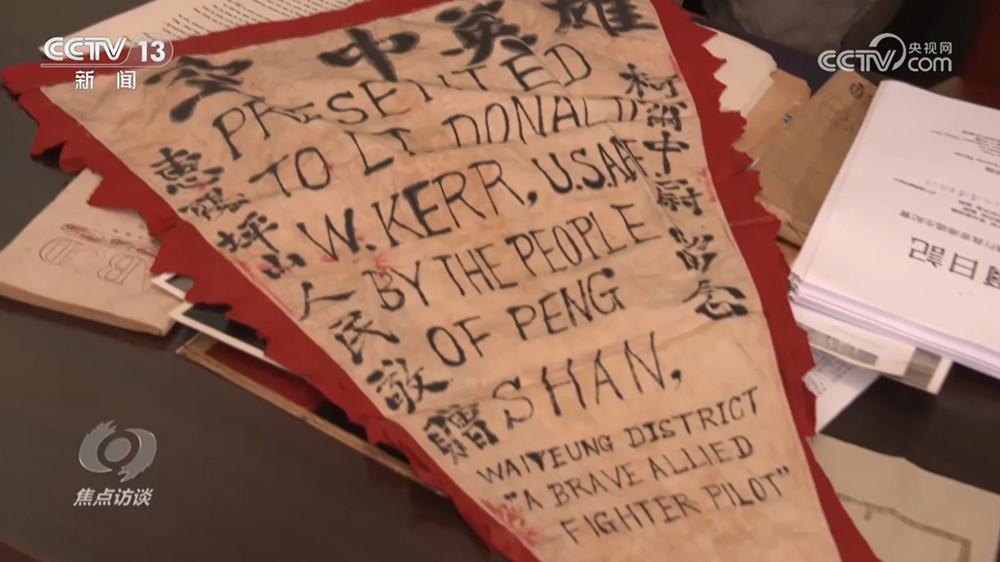 CCTV 13
新闻
CCTV 央视网
com
空中英雄
PRESENTED
TO LT DONALD
W. KERR, U.S.A.A.F
BY THE PEOPLE
OF PENG
SHAN,
WAIYEUNG DISTRICT
"A BRAVE ALLIED
FIGHTER PILOT"
柯爾中尉留念
惠陽坪山人民敬贈
日記
焦点访谈